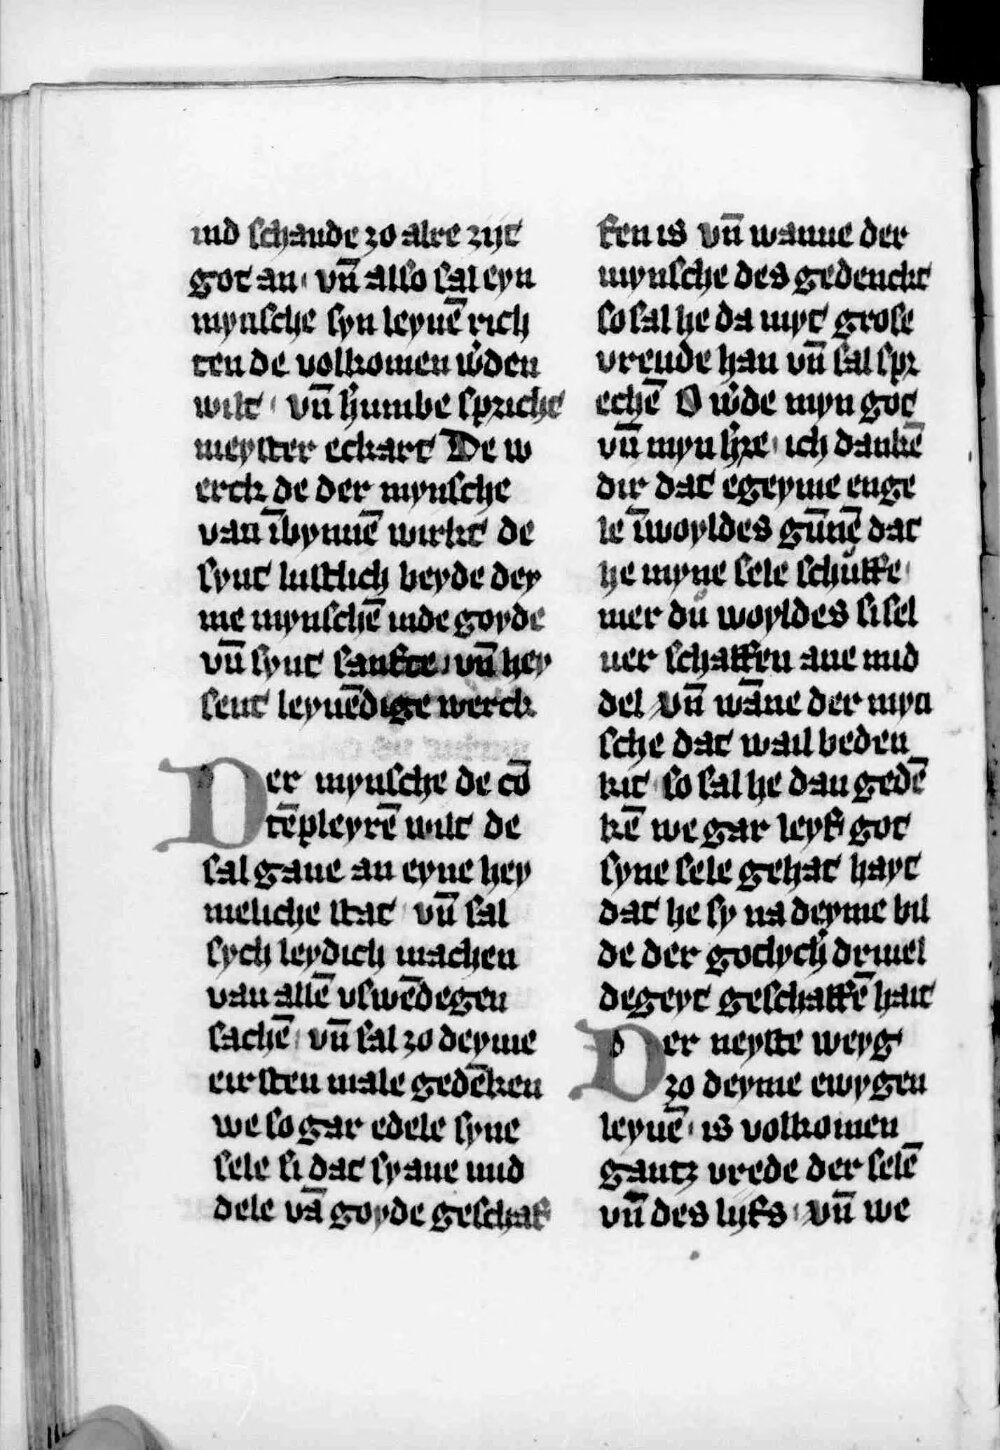 ind schande zo alre zijt
got an vn̄ also sal eyn
mynsche syn leyuē rich
ten de volkomen w̉den
wilt vn̄ h̉umbe sprichit
meyster eckart De w
erck de der mynsche
van ī bynnē wirkt de
synt lustlich beyde dey
me mynschē inde goyde
vn̄ synt sanfte vn̄ hey
sent leyuēdige werck
Der mynsche de cō
tēpleyrē wilt de
sal gane an eyne hey
meliche stat vn̄ sal
sych leydich machen
van allē vswēdegen
sachē vn̄ sal zo deyme
eirsten male gedēken
we so gar edele syne
sele si dat sy ane mid
dele vā goyde geschaf
fen is vn̄ wanne der
mynsche des gedenckt
so sal he da myt grose
vreude han vn̄ sal spr
echē O w̉de myn got
vn̄ myn h̉re ich dankē
dir dat egeyme enge
le n̄ woyldes gūnē dat
he myne sele schůffe
mer dů woyldes si sel
uer schaffen ane mid
del vn̄ wāne der myn
sche dat wail beden
kit so sal he dan gedē
kē we gar leyf got
syne sele gehat hayt
dat he sy na deyme bil
de der godlych̉ driuel
degeyt geschaffē hait
Der neyste weyg
zo deyme ewygen
leyuē is volkomen
gantz vrede der selē
vn̄ des lijfs vn̄ we